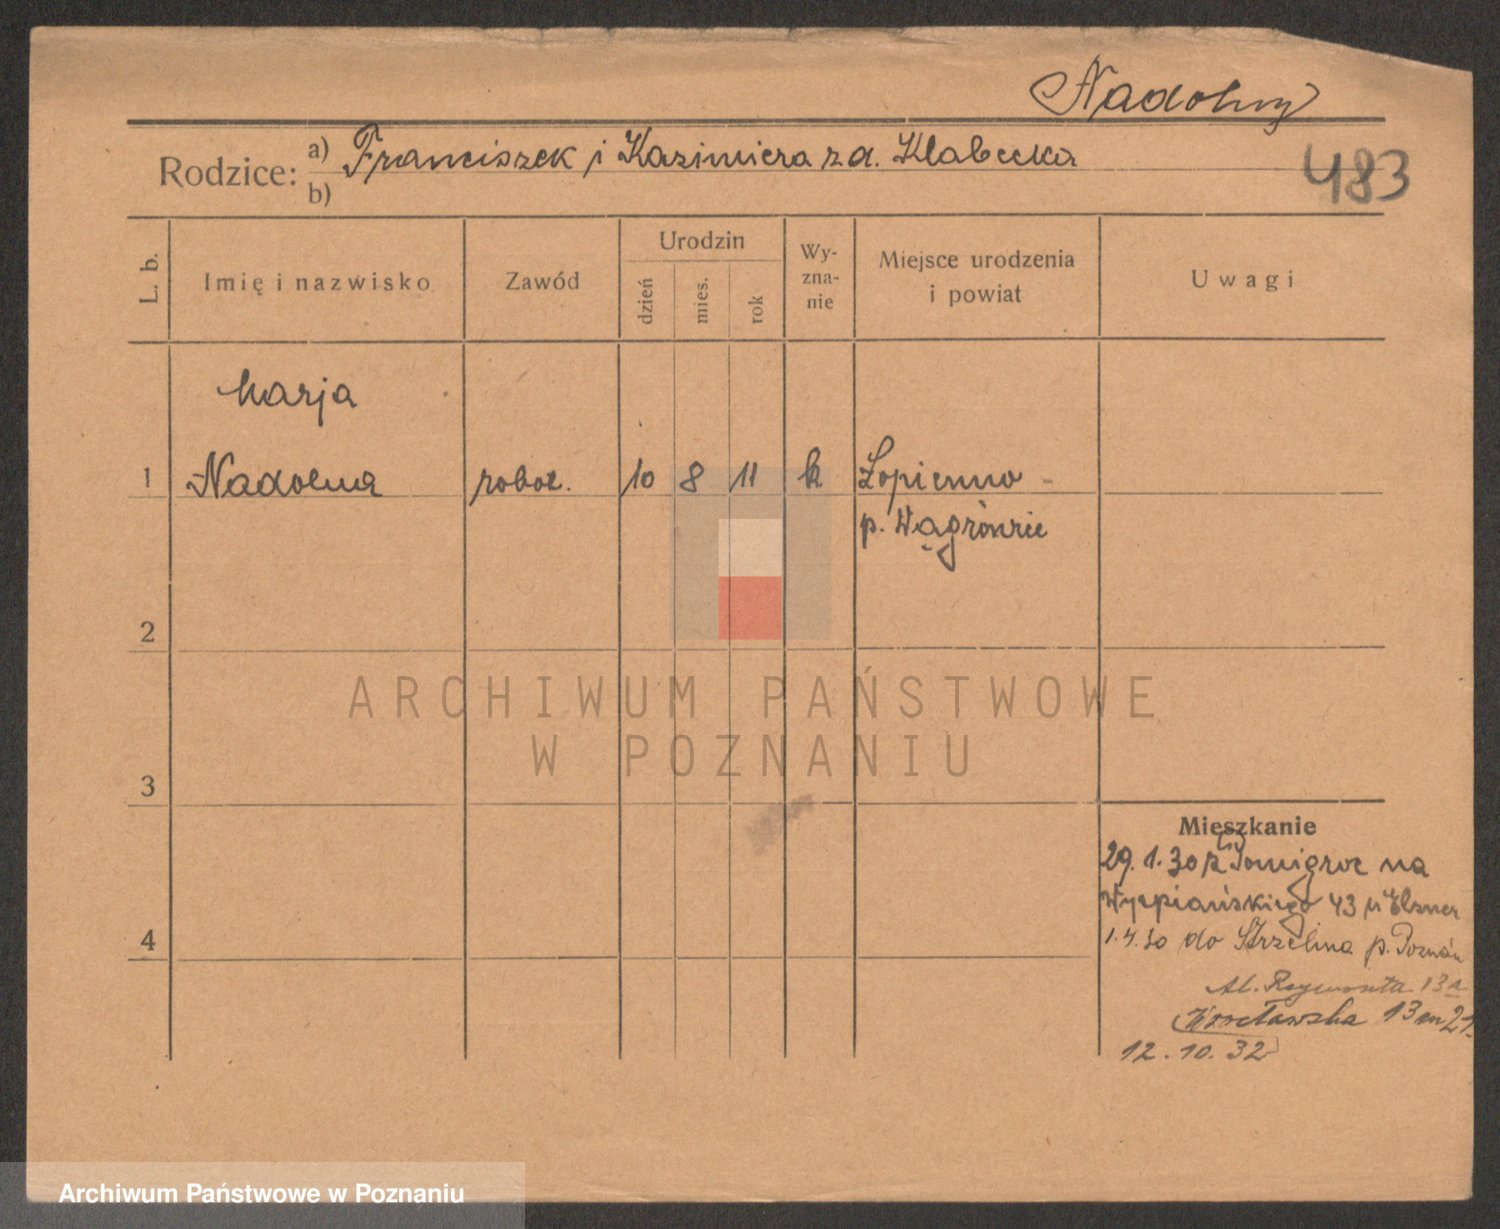 Nadolny
Rodzice: a) Franciszek i Kazimiera z d. Klabecka
b)
483
L. b.
Imię i nazwisko
Zawód
Urodzin
dzień
mies.
rok
Wy-
zna-
nie
Miejsce urodzenia
i powiat
Uwagi
Marja
1 Nadolna robot. 10 8 11 k Łopienno -
p. Wągrówiec
2
3
4
ARCHIWUM PAŃSTWOWE
W POZNANIU
Mieszkanie
29.1.30 z na
Wyspiańskiego 43 u Elsner
1.4.30 do Strzelna p. Poznań
Al. Reymonta 13a
Wrocławska 13 m 21
12.10.32
Archiwum Państwowe w Poznaniu